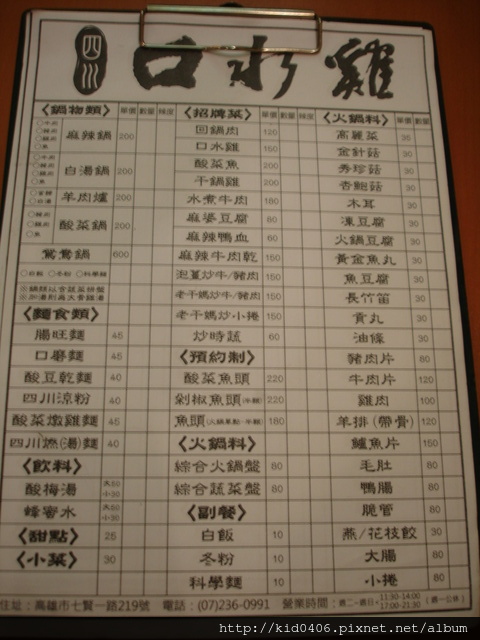 四川 口水雞
〈鍋物類〉 單價 數量 辣度
麻辣鍋 200
白湯鍋 200
羊肉爐 200
酸菜鍋 200
鴛鴦鍋 600
〈麵食類〉
腸旺麵 45
口磨麵 45
酸豆乾麵 40
四川涼粉 40
酸菜燉雞麵 45
四川燃(湯)麵 40
〈飲料〉
酸梅湯 大50 小30
蜂蜜水 大50 小30
〈甜點〉 25
〈小菜〉 30
〈招牌菜〉 單價 數量 辣度
回鍋肉 120
口水雞 160
酸菜魚 200
干鍋雞 200
水煮牛肉 180
麻婆豆腐 80
麻辣鴨血 60
麻辣牛肉乾 150
泡薑炒牛/豬肉 150
老干媽炒牛/豬肉 150
老干媽炒小捲 150
炒時蔬 60
〈預約制〉
酸菜魚頭 220
剁椒魚頭(半顆) 220
魚頭(火鍋單點-半顆) 180
〈火鍋料〉
綜合火鍋盤 80
綜合蔬菜盤 80
〈副餐〉
白飯 10
冬粉 10
科學麵 10
〈火鍋料〉 單價 數量
高麗菜 35
金針菇 30
秀珍菇 30
杏鮑菇 30
木耳 30
凍豆腐 30
火鍋豆腐 30
黃金魚丸 30
魚豆腐 30
長竹笛 30
貢丸 30
油條 30
豬肉片 80
牛肉片 120
雞肉 100
羊排(帶骨) 120
鱸魚片 150
毛肚 80
鴨腸 80
脆管 80
燕/花枝餃 30
大腸 80
小捲 80
住址：高雄市七賢一路219號 電話：(07)236-0991 營業時間：週二~週日 11:30-14:00 17:00-21:30 (週一公休)
http://kid0406.pixnet.net/album